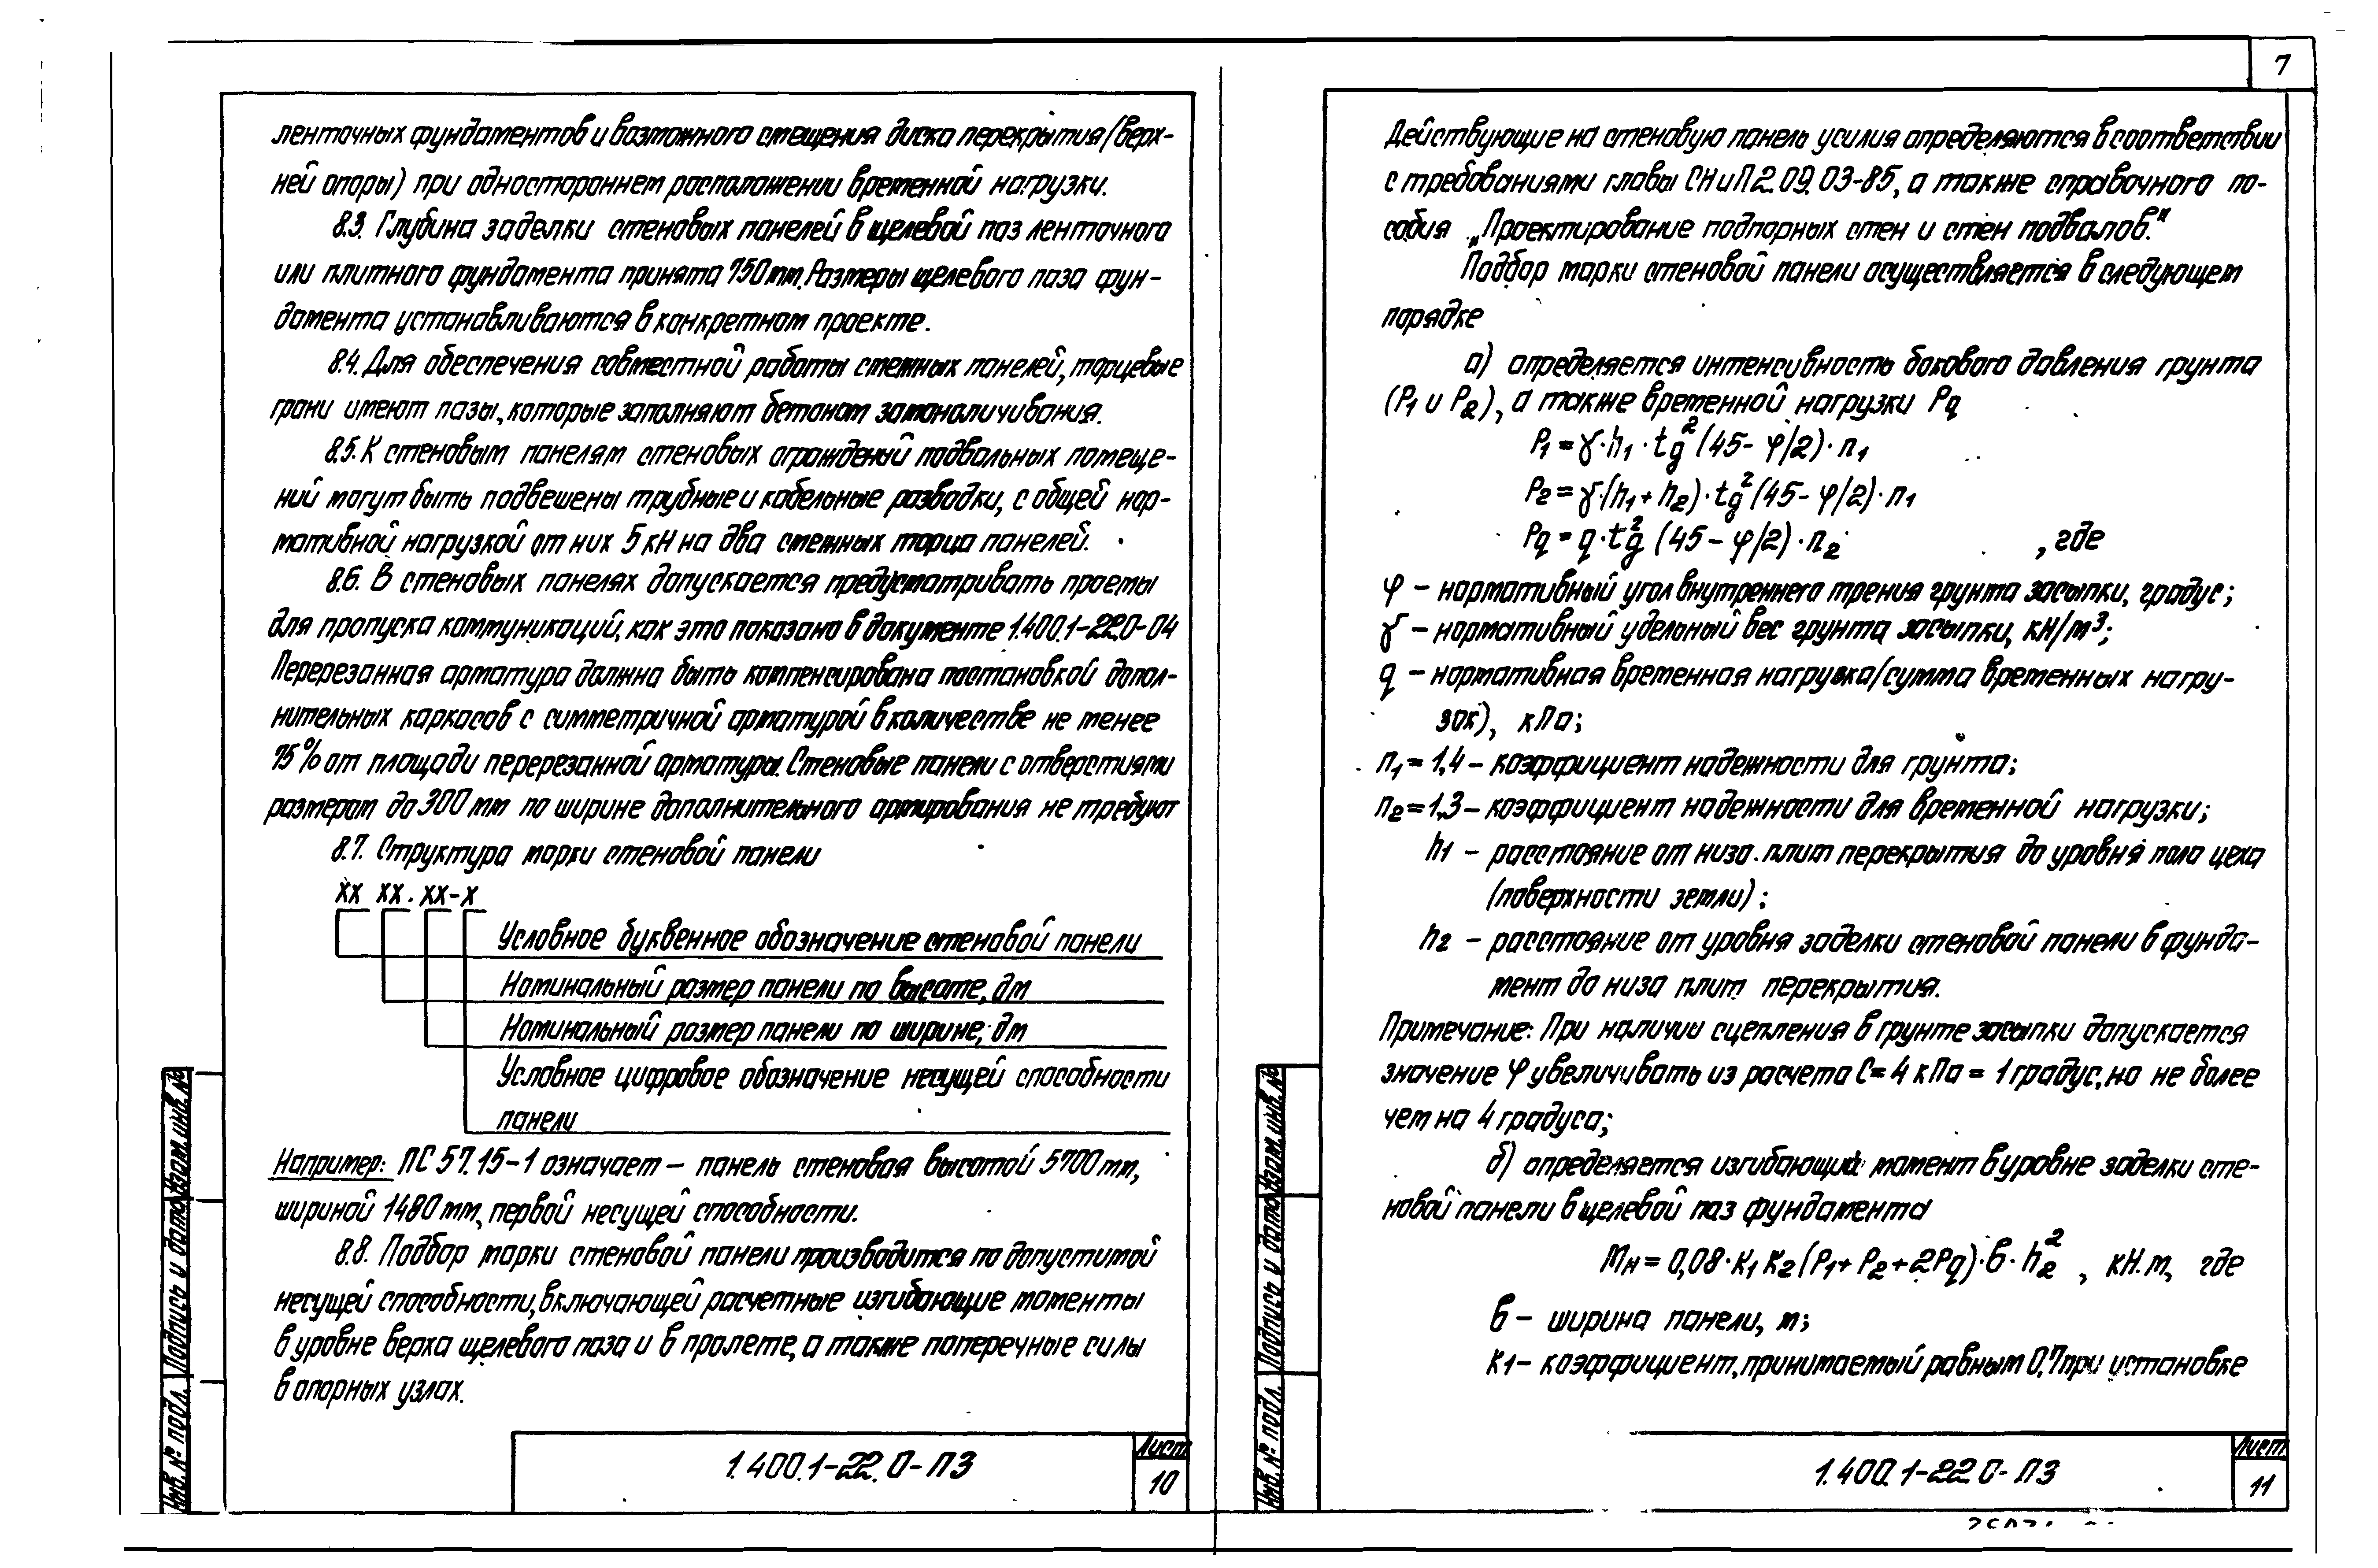 7
ленточных фундаментов и возможного смещения диска перекрытия (верх-
ней опоры) при одностороннем расположении временной нагрузки.
8.3. Глубина заделки стеновых панелей в щелевой паз ленточного
или плитного фундамента принята 750 мм. Размеры щелевого паза фун-
дамента устанавливаются в конкретном проекте.
8.4. Для обеспечения совместной работы смежных панелей, торцевые
грани имеют пазы, которые заполняют бетоном замоноличивания.
8.5. К стеновым панелям стеновых ограждений подвальных помеще-
ний могут быть подвешены трубные и кабельные разводки, с общей нор-
мативной нагрузкой от них 5 кН на два смежных торца панелей.
8.6. В стеновых панелях допускается предусматривать проемы
для пропуска коммуникаций, как это показано в документе 1.400.1-22.0-04
Перерезанная арматура должна быть компенсирована постановкой допол-
нительных каркасов с симметричной арматурой в количестве не менее
75% от площади перерезанной арматуры. Стеновые панели с отверстиями
размером до 300 мм по ширине дополнительного армирования не требуют
8.7. Структура марки стеновой панели
ХХ ХХ . ХХ - Х
Условное буквенное обозначение стеновой панели
Номинальный размер панели по высоте, дм
Номинальный размер панели по ширине, дм
Условное цифровое обозначение несущей способности
панели
Например: ПС 57.15-1 означает – панель стеновая высотой 5700 мм,
шириной 1480 мм, первой несущей способности.
8.8. Подбор марки стеновой панели производится по допустимой
несущей способности, включающей расчетные изгибающие моменты
в уровне верха щелевого паза и в пролете, а также поперечные силы
в опорных узлах.
Инв. № подл. Подпись и дата Взам. инв. №
1.400.1-22.0-ПЗ
Лист
10
Действующие на стеновую панель усилия определяются в соответствии
с требованиями главы СНиП 2.09.03-85, а также справочного по-
собия „Проектирование подпорных стен и стен подвалов.“
Подбор марки стеновой панели осуществляется в следующем
порядке
а) определяется интенсивность бокового давления грунта
(P₁ и P₂), а также временной нагрузки Pq
P₁ = γ·h₁·tg²(45 - φ/2)·n₁
P₂ = γ·(h₁ + h₂)·tg²(45 - φ/2)·n₁
Pq = q·tg²(45 - φ/2)·n₂ , где
φ – нормативный угол внутреннего трения грунта засыпки, градус;
γ – нормативный удельный вес грунта засыпки, кН/м³;
q – нормативная временная нагрузка (сумма временных нагру-
зок), кПа;
n₁ = 1,4 – коэффициент надежности для грунта;
n₂ = 1,3 – коэффициент надежности для временной нагрузки;
h₁ – расстояние от низа плит перекрытия до уровня пола цеха
(поверхности земли);
h₂ – расстояние от уровня заделки стеновой панели в фунда-
мент до низа плит перекрытия.
Примечание: При наличии сцепления в грунте засыпки допускается
значение φ увеличивать из расчета С = 4 кПа = 1 градус, но не более
чем на 4 градуса;
б) определяется изгибающий момент в уровне заделки сте-
новой панели в щелевой паз фундамента
Mн = 0,08·к₁ к₂ (P₁ + P₂ + 2Pq)·в·h₂² , кН.м, где
в – ширина панели, м;
к₁ – коэффициент, принимаемый равным 0,7 при установке
Инв. № подл. Подпись и дата Взам. инв. №
1.400.1-22.0-ПЗ
Лист
11